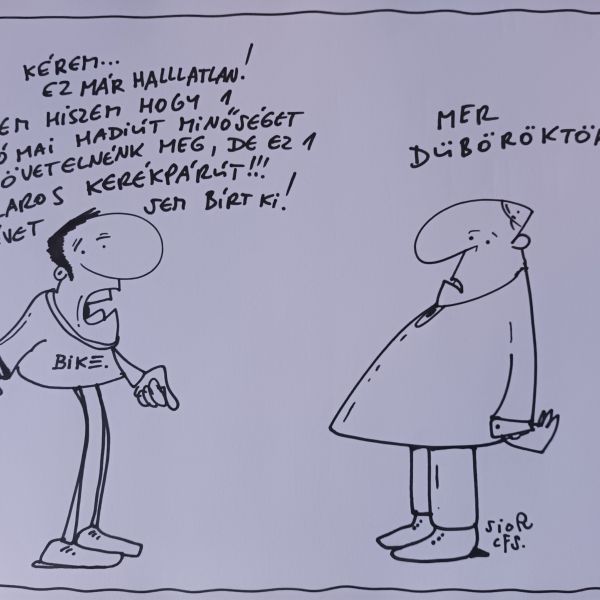 KÉREM...
EZ MÁR HALLLATLAN!
EM HISZEM HOGY 1
Ó MAI HADIÚT MINŐSÉGET
ÖVETELNÉNK MEG, DE EZ 1
LAROS KERÉKPÁRÚT!!!
ÉVET SEM BÍRT KI!
MER
DÜBÖRÖKTÖR
BIKE.
SIOR
CFS.